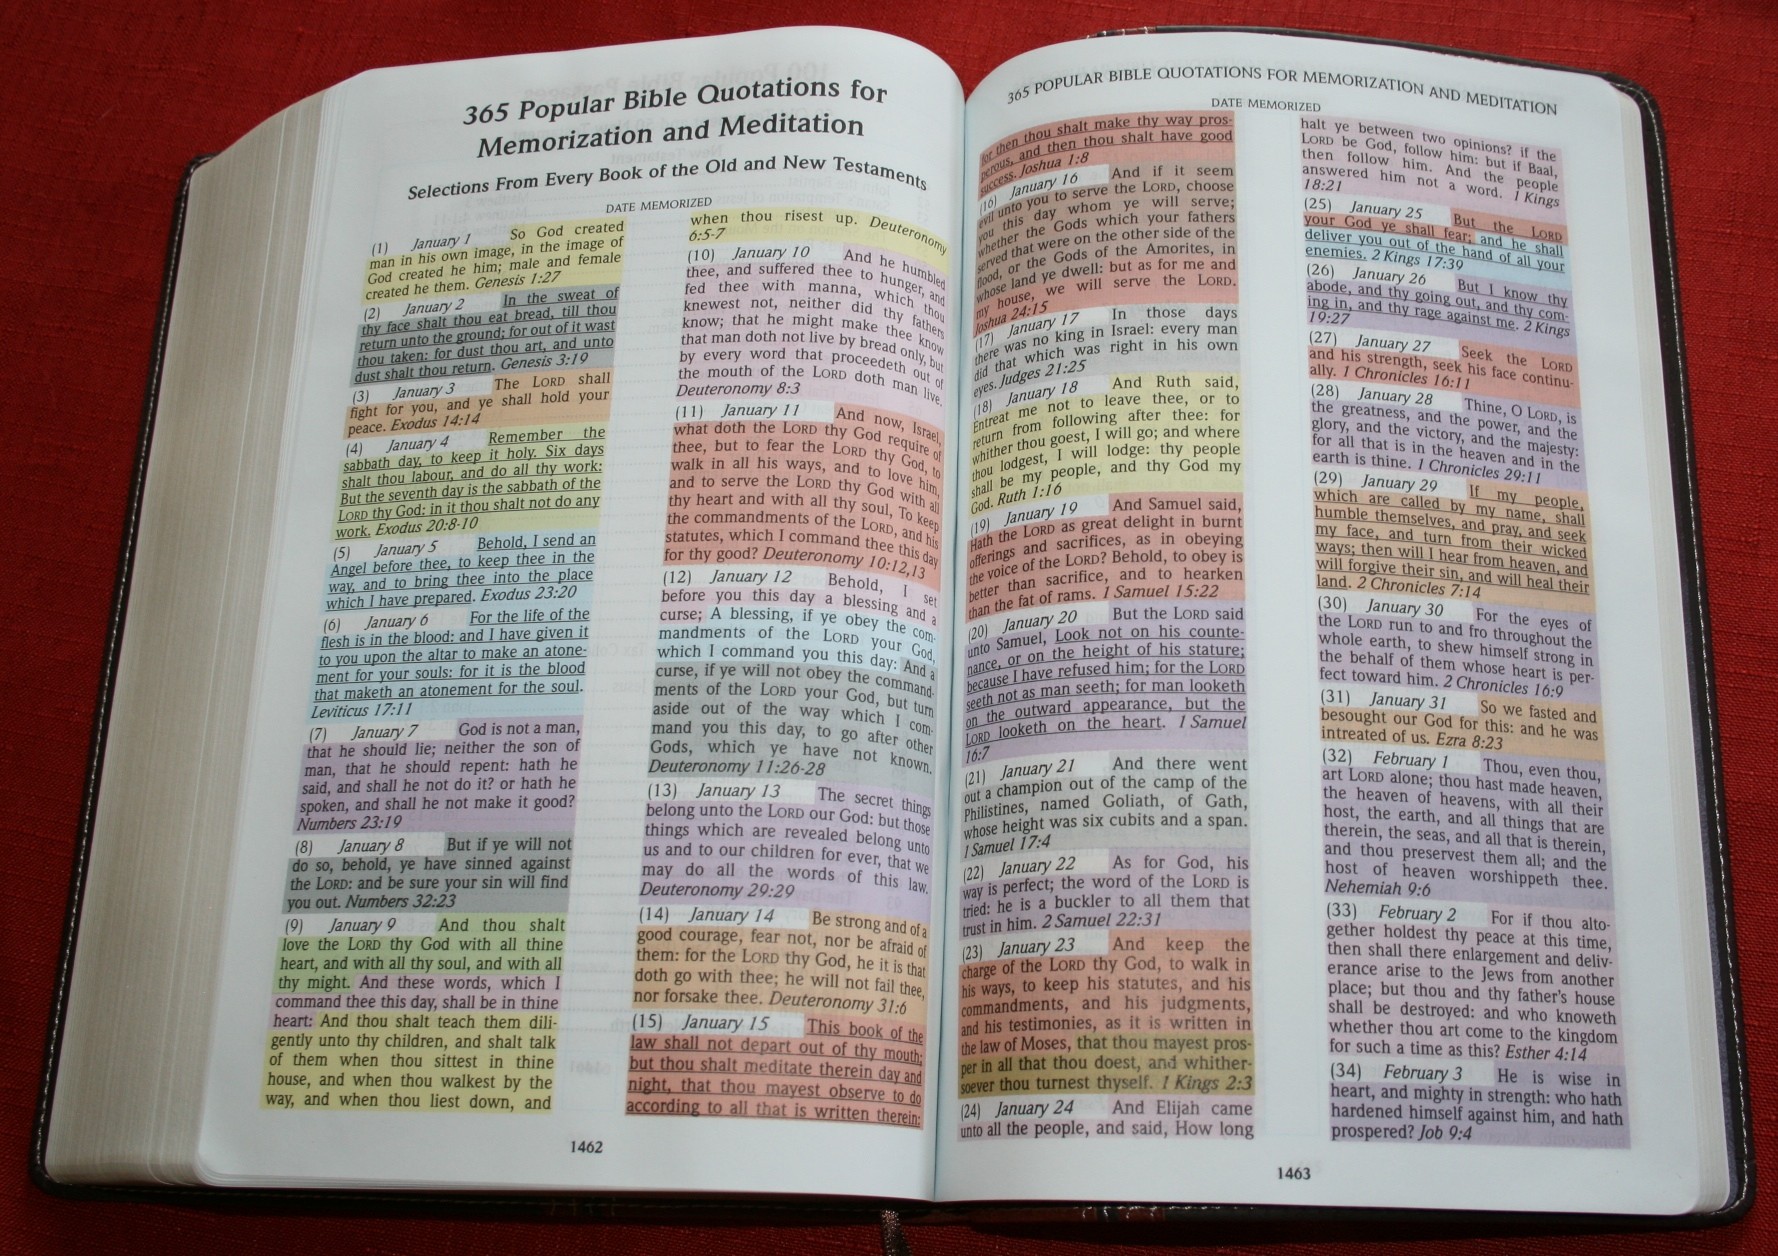 365 Popular Bible Quotations for
Memorization and Meditation
Selections From Every Book of the Old and New Testaments
DATE MEMORIZED
(1) January 1 So God created
man in his own image, in the image of
God created he him; male and female
created he them. Genesis 1:27
(2) January 2 In the sweat of
thy face shalt thou eat bread, till thou
return unto the ground; for out of it wast
thou taken: for dust thou art, and unto
dust shalt thou return. Genesis 3:19
(3) January 3 The LORD shall
fight for you, and ye shall hold your
peace. Exodus 14:14
(4) January 4 Remember the
sabbath day, to keep it holy. Six days
shalt thou labour, and do all thy work:
But the seventh day is the sabbath of the
LORD thy God: in it thou shalt not do any
work. Exodus 20:8-10
(5) January 5 Behold, I send an
Angel before thee, to keep thee in the
way, and to bring thee into the place
which I have prepared. Exodus 23:20
(6) January 6 For the life of the
flesh is in the blood: and I have given it
to you upon the altar to make an atone-
ment for your souls: for it is the blood
that maketh an atonement for the soul.
Leviticus 17:11
(7) January 7 God is not a man,
that he should lie; neither the son of
man, that he should repent: hath he
said, and shall he not do it? or hath he
spoken, and shall he not make it good?
Numbers 23:19
(8) January 8 But if ye will not
do so, behold, ye have sinned against
the LORD: and be sure your sin will find
you out. Numbers 32:23
(9) January 9 And thou shalt
love the LORD thy God with all thine
heart, and with all thy soul, and with all
thy might. And these words, which I
command thee this day, shall be in thine
heart: And thou shalt teach them dili-
gently unto thy children, and shalt talk
of them when thou sittest in thine
house, and when thou walkest by the
way, and when thou liest down, and
when thou risest up. Deuteronomy
6:5-7
(10) January 10 And he humbled
thee, and suffered thee to hunger, and
fed thee with manna, which thou
knewest not, neither did thy fathers
know; that he might make thee know
that man doth not live by bread only, but
by every word that proceedeth out of
the mouth of the LORD doth man live.
Deuteronomy 8:3
(11) January 11 And now, Israel,
what doth the LORD thy God require of
thee, but to fear the LORD thy God, to
walk in all his ways, and to love him,
and to serve the LORD thy God with all
thy heart and with all thy soul, To keep
the commandments of the LORD, and his
statutes, which I command thee this day
for thy good? Deuteronomy 10:12,13
(12) January 12 Behold, I set
before you this day a blessing and a
curse; A blessing, if ye obey the com-
mandments of the LORD your God,
which I command you this day: And a
curse, if ye will not obey the command-
ments of the LORD your God, but turn
aside out of the way which I com-
mand you this day, to go after other
Gods, which ye have not known.
Deuteronomy 11:26-28
(13) January 13 The secret things
belong unto the LORD our God: but those
things which are revealed belong unto
us and to our children for ever, that we
may do all the words of this law.
Deuteronomy 29:29
(14) January 14 Be strong and of a
good courage, fear not, nor be afraid of
them: for the LORD thy God, he it is that
doth go with thee; he will not fail thee,
nor forsake thee. Deuteronomy 31:6
(15) January 15 This book of the
law shall not depart out of thy mouth;
but thou shalt meditate therein day and
night, that thou mayest observe to do
according to all that is written therein:
1462
365 POPULAR BIBLE QUOTATIONS FOR MEMORIZATION AND MEDITATION
DATE MEMORIZED
for then thou shalt make thy way pros-
perous, and then thou shalt have good
success. Joshua 1:8
(16) January 16 And if it seem
evil unto you to serve the LORD, choose
you this day whom ye will serve;
whether the Gods which your fathers
served that were on the other side of the
flood, or the Gods of the Amorites, in
whose land ye dwell: but as for me and
my house, we will serve the LORD.
Joshua 24:15
(17) January 17 In those days
there was no king in Israel: every man
did that which was right in his own
eyes. Judges 21:25
(18) January 18 And Ruth said,
Entreat me not to leave thee, or to
return from following after thee: for
whither thou goest, I will go; and where
thou lodgest, I will lodge: thy people
shall be my people, and thy God my
God. Ruth 1:16
(19) January 19 And Samuel said,
Hath the LORD as great delight in burnt
offerings and sacrifices, as in obeying
the voice of the LORD? Behold, to obey is
better than sacrifice, and to hearken
than the fat of rams. 1 Samuel 15:22
(20) January 20 But the LORD said
unto Samuel, Look not on his counte-
nance, or on the height of his stature;
because I have refused him; for the LORD
seeth not as man seeth; for man looketh
on the outward appearance, but the
LORD looketh on the heart. 1 Samuel
16:7
(21) January 21 And there went
out a champion out of the camp of the
Philistines, named Goliath, of Gath,
whose height was six cubits and a span.
1 Samuel 17:4
(22) January 22 As for God, his
way is perfect; the word of the LORD is
tried: he is a buckler to all them that
trust in him. 2 Samuel 22:31
(23) January 23 And keep the
charge of the LORD thy God, to walk in
his ways, to keep his statutes, and his
commandments, and his judgments,
and his testimonies, as it is written in
the law of Moses, that thou mayest pros-
per in all that thou doest, and whither-
soever thou turnest thyself. 1 Kings 2:3
(24) January 24 And Elijah came
unto all the people, and said, How long
halt ye between two opinions? if the
LORD be God, follow him: but if Baal,
then follow him. And the people
answered him not a word. 1 Kings
18:21
(25) January 25 But the LORD
your God ye shall fear; and he shall
deliver you out of the hand of all your
enemies. 2 Kings 17:39
(26) January 26 But I know thy
abode, and thy going out, and thy com-
ing in, and thy rage against me. 2 Kings
19:27
(27) January 27 Seek the LORD
and his strength, seek his face continu-
ally. 1 Chronicles 16:11
(28) January 28 Thine, O LORD, is
the greatness, and the power, and the
glory, and the victory, and the majesty:
for all that is in the heaven and in the
earth is thine. 1 Chronicles 29:11
(29) January 29 If my people,
which are called by my name, shall
humble themselves, and pray, and seek
my face, and turn from their wicked
ways; then will I hear from heaven, and
will forgive their sin, and will heal their
land. 2 Chronicles 7:14
(30) January 30 For the eyes of
the LORD run to and fro throughout the
whole earth, to shew himself strong in
the behalf of them whose heart is per-
fect toward him. 2 Chronicles 16:9
(31) January 31 So we fasted and
besought our God for this: and he was
intreated of us. Ezra 8:23
(32) February 1 Thou, even thou,
art LORD alone; thou hast made heaven,
the heaven of heavens, with all their
host, the earth, and all things that are
therein, the seas, and all that is therein,
and thou preservest them all; and the
host of heaven worshippeth thee.
Nehemiah 9:6
(33) February 2 For if thou alto-
gether holdest thy peace at this time,
then shall there enlargement and deliv-
erance arise to the Jews from another
place; but thou and thy father's house
shall be destroyed: and who knoweth
whether thou art come to the kingdom
for such a time as this? Esther 4:14
(34) February 3 He is wise in
heart, and mighty in strength: who hath
hardened himself against him, and hath
prospered? Job 9:4
1463